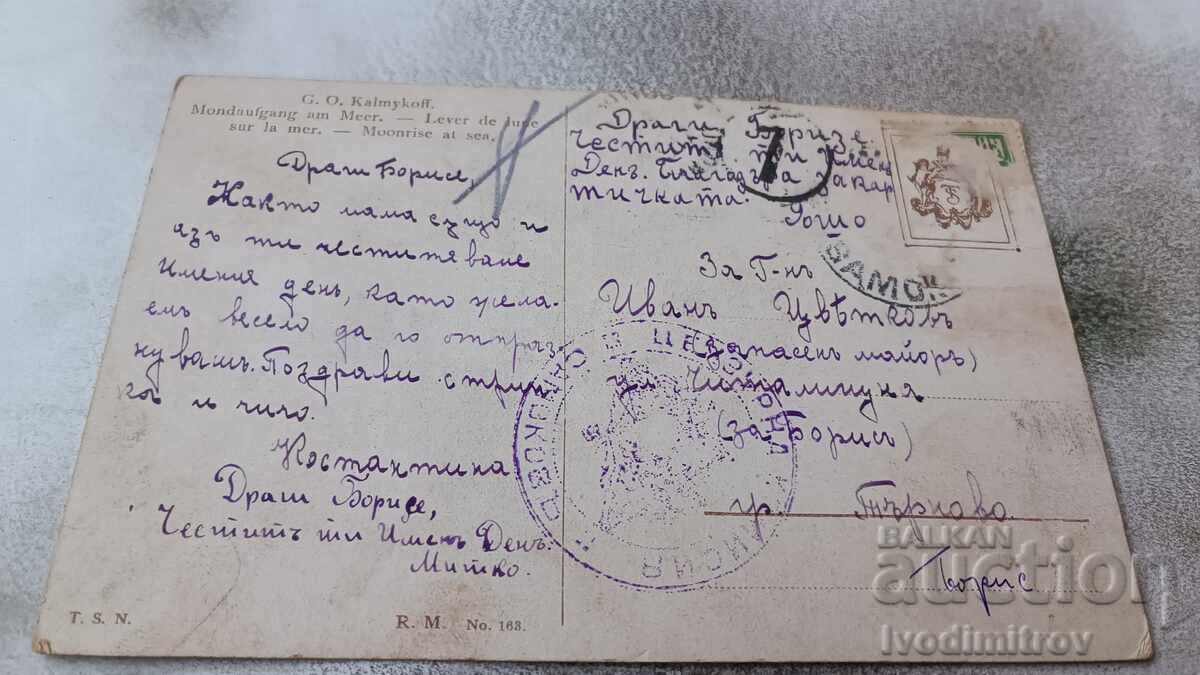 G. O. Kalmykoff.
Mondaufgang am Meer. — Lever de lune
sur la mer. — Moonrise at sea.
Драги Борисе,
Както мама също и
азъ ти честитяваме
Имения день, като жела-
емъ весело да го отпраз-
нувашъ. Поздрави стрин-
ка и чичо.
Костантина
Драги Борисе,
Честитъ ти Именъ Денъ.
Митко.
T. S. N.
R. M. No. 163.
Драги Боризе,
Честитъ ти Имен
Денъ. Благодаря за кар
тичката.
Гошо
7
САМО
За Г-нъ
Иванъ Цвѣтковъ
(запасенъ майоръ)
ул. Читалищна
(за Борисъ)
гр. Търново
Борис
ВОЕННО ЦЕНЗУРНА КОМИСИЯ
BALKAN
auction
Ivodimitrov